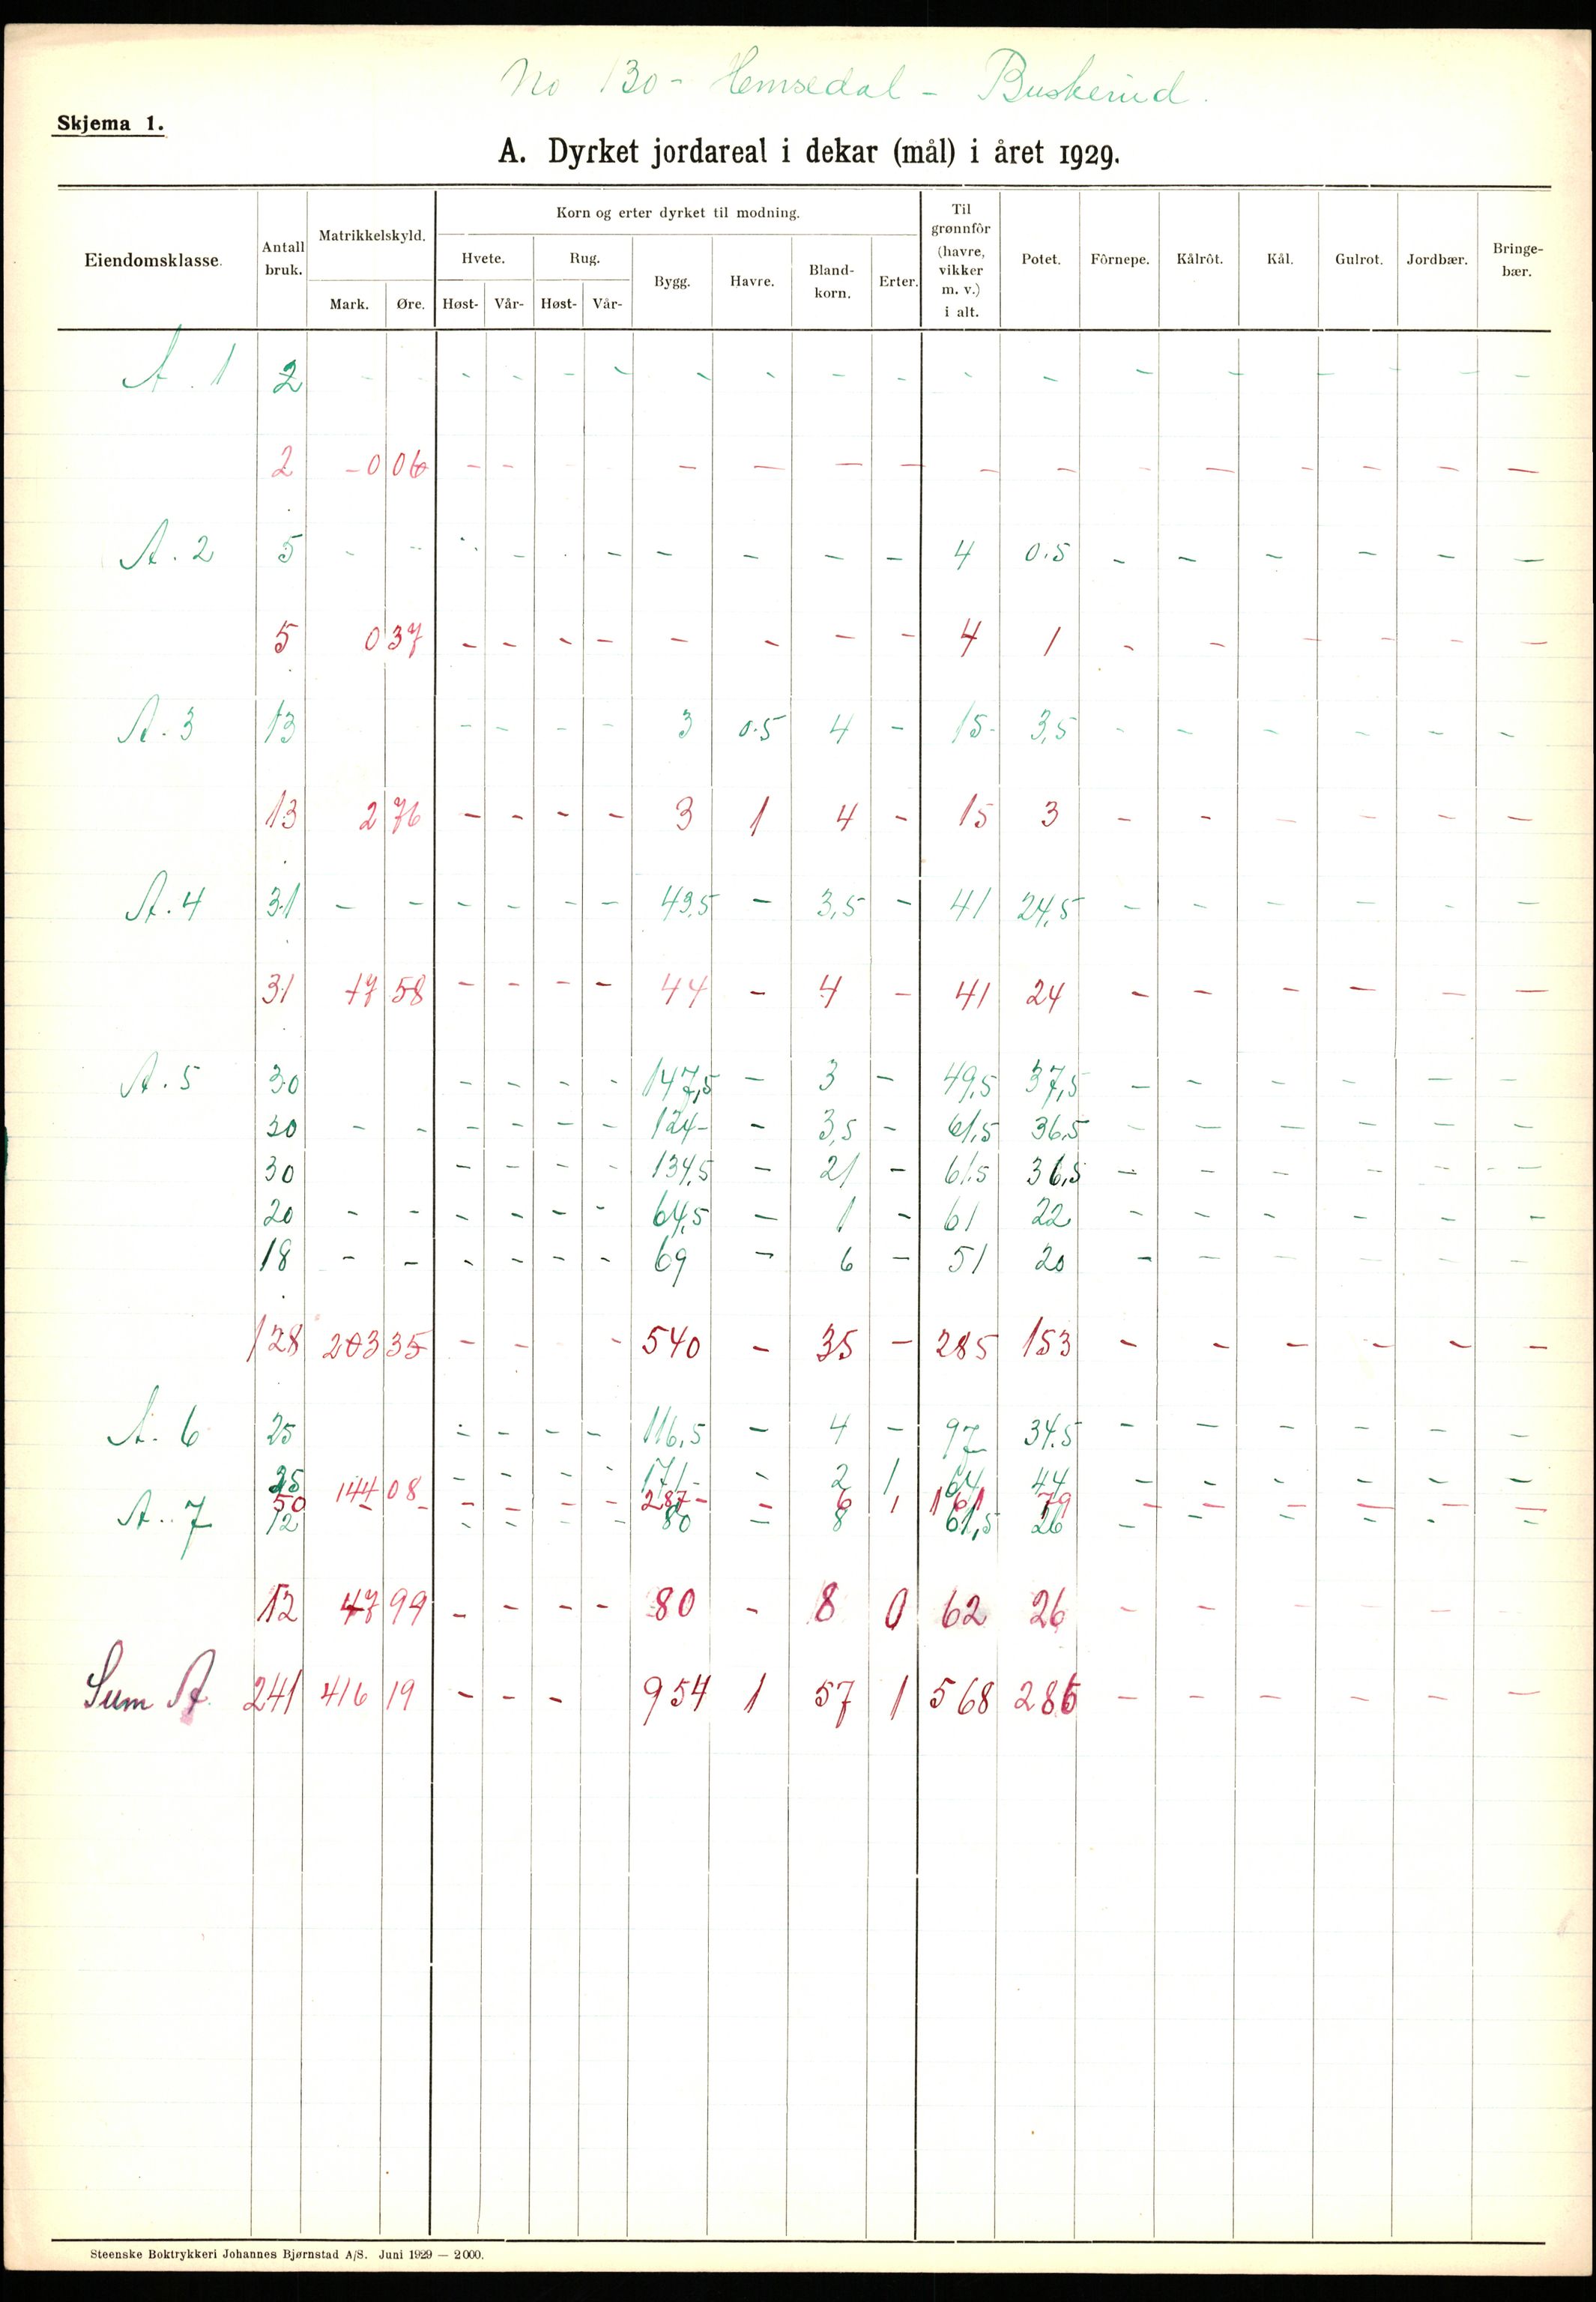 No 130 - Hemsedal - Buskerud.
Skjema 1.
A. Dyrket jordareal i dekar (mål) i året 1929.
Eiendomsklasse. Antall bruk. Matrikkelskyld. Korn og erter dyrket til modning. Til grønnfôr (havre, vikker m. v.) i alt. Potet. Fôrnepe. Kålrôt. Kål. Gulrot. Jordbær. Bringebær.
Hvete. Rug. Bygg. Havre. Blandkorn. Erter.
Mark. Øre. Høst- Vår- Høst- Vår-
A. 1 2 - - - - - - - - - - - - - - - - - -
2 - 0 06 - - - - - - - - - - - - - -
A. 2 5 - - - - - - - - - - 4 0.5 - - - - - -
5 0 37 - - - - - - - - 4 1 - - - - - -
A. 3 13 - - - - 3 0.5 4 - 15- 3,5 - - - - - -
13 2 76 - - - - 3 1 4 - 15 3 - - - - - -
A. 4 31 - - - - - - 43,5 - 3,5 - 41 24,5 - - - - - -
31 17 58 - - - - 44 - 4 - 41 24 - - - - - -
A. 5 30 - - - - 147,5 - 3 - 49,5 37,5 - - - - - -
30 - - - - - - 124- - 3,5 - 61,5 36,5 - - - - - -
30 - - - - 134,5 - 21 - 61.5 36,5 - - - - - -
20 - - - - - - 64,5 - 1 - 61 22 - - - - - -
18 - - - - - - 69 - 6 - 51 20 - - - - - -
128 203 35 - - - 540 - 35 - 285 153 - - - - - -
A. 6 25 - - - - 116,5 - 4 - 97 34.5 - - - - - -
25 - - - - 171- - 2 1 64 44 - - - - - -
50 144 08 - - - - 287- - 6 1 161 79 - - - - - -
A. 7 12 - - - - 80 - 8 61,5 26 - - - - - -
12 47 99 - - - - 80 - 8 0 62 26 - - - - - -
Sum A. 241 416 19 - - - 954 1 57 1 568 286 - - - - - -
Steenske Boktrykkeri Johannes Bjørnstad A/S. Juni 1929 — 2000.